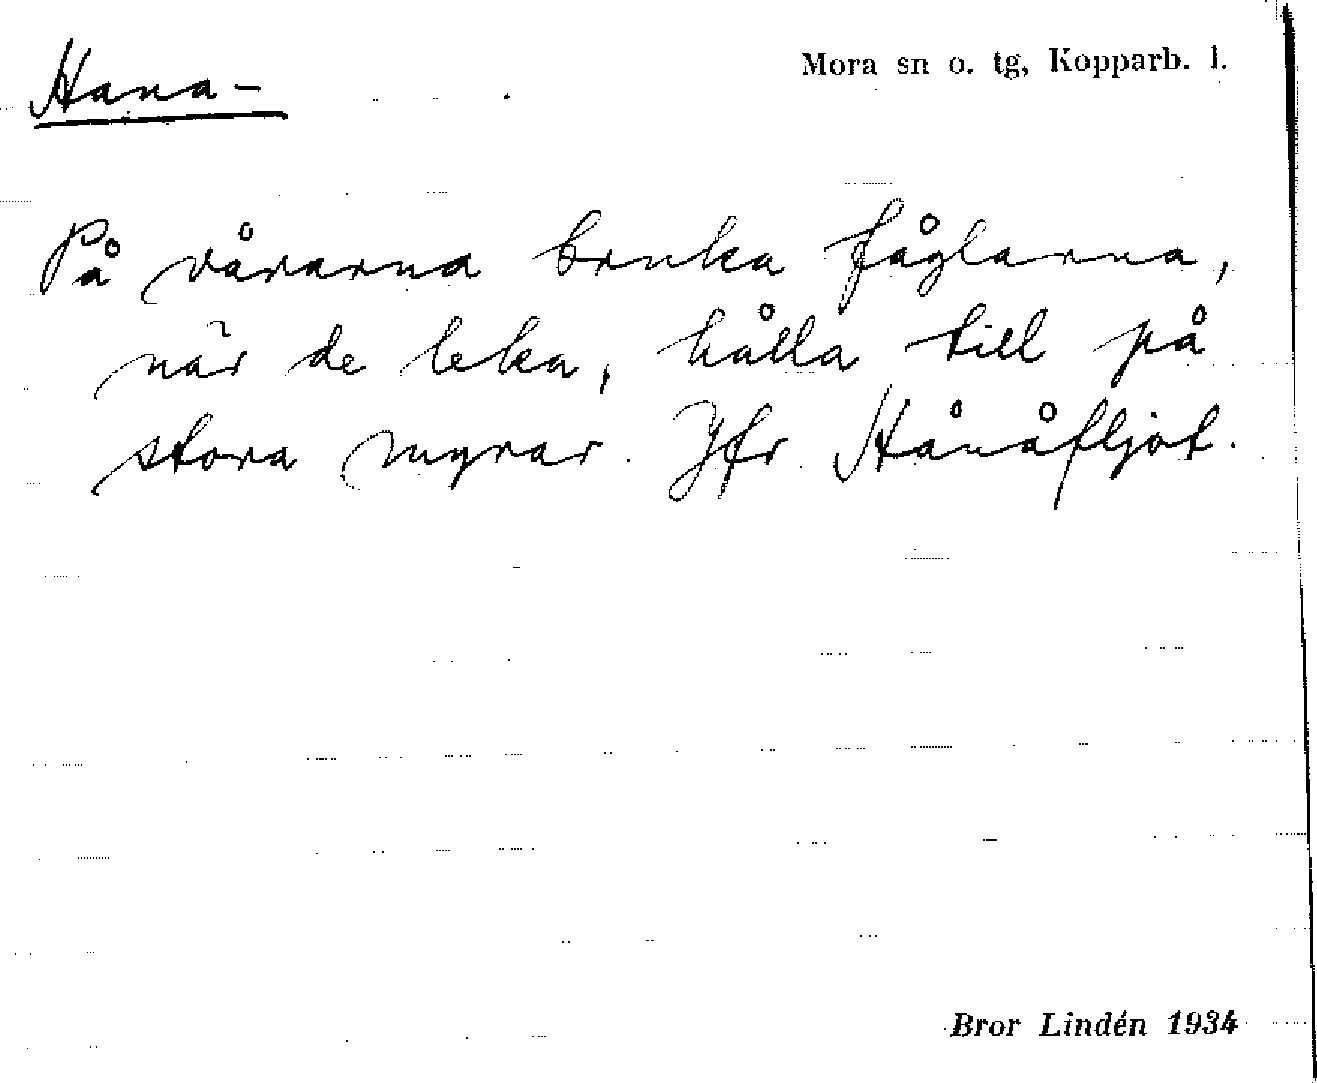 Hana-
Mora sn o. tg, Kopparb. l.
På vårarna bruka fåglarna,
när de leka, hålla till på
stora myrar. Jfr Hånåfljot.
Bror Lindén 1934